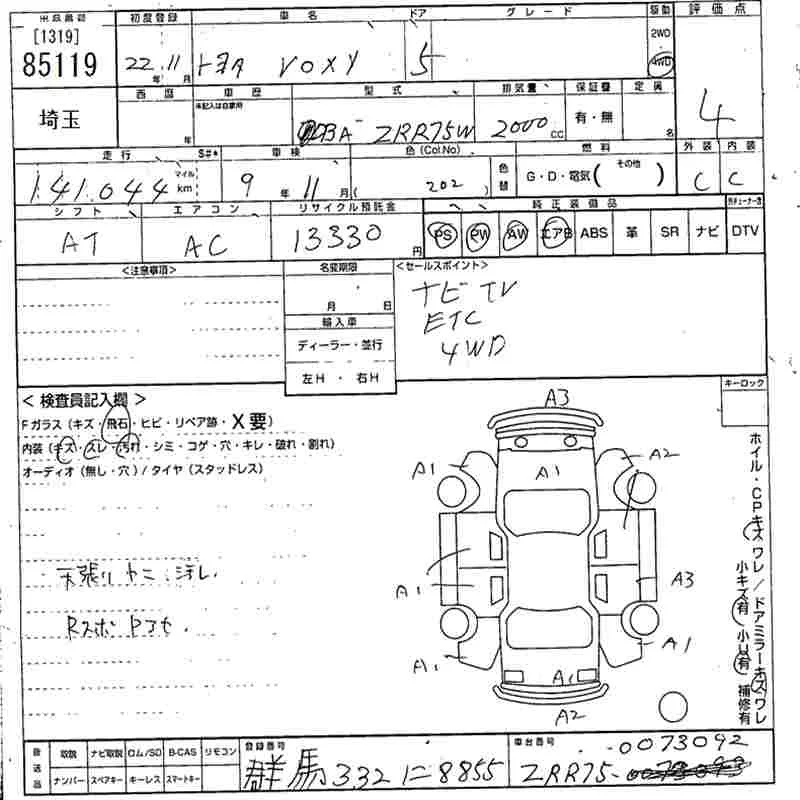 出品番号 初度登録 車名 ドア グレード 駆動 評価点
[1319] 2WD
85119 22.11 年 月 トヨタ VOXY 5 4WD
埼玉 西暦 車歴 型式 排気量 保証書 定員 4
未記入は自家用 有・無
年 DBA ZRR75W 2000 CC 名
走行 S#* 車検 色(Col.No) 色替 燃料 外装 内装
141,044 マイル km 9年 11月 ( 202 ) G・D・電気( その他 ) C C
シフト エアコン リサイクル預託金 純正装備品
AT AC 13330円 PS PW AW エアB ABS 革 SR ナビ DTV
<注意事項> 名変期限 <セールスポイント>
月 日 ナビ TV
輸入車 ETC
ディーラー・並行 4WD
左H・右H
<検査員記入欄> キーロック
Fガラス(キズ・飛石・ヒビ・リペア跡・X要)
内装(キズ・スレ・汚れ・シミ・コゲ・穴・キレ・破れ・割れ)
オーディオ(無し・穴)/タイヤ(スタッドレス)
A3
A1 A1 A2
天張りヤニ汚レ.
A1 A3
Rスポ
A1 A1 A1
A2
ホイル・CPキズワレ/ドアミラーキズワレ
小キズ有 小凹有 補修有
後送品 取説 ナビ取説 ロム/SD B-CAS リモコン 登録番号 車台番号
ナンバー スペアキー キーレス スマートキー 群馬 332 に 8855 ZRR75-0073092